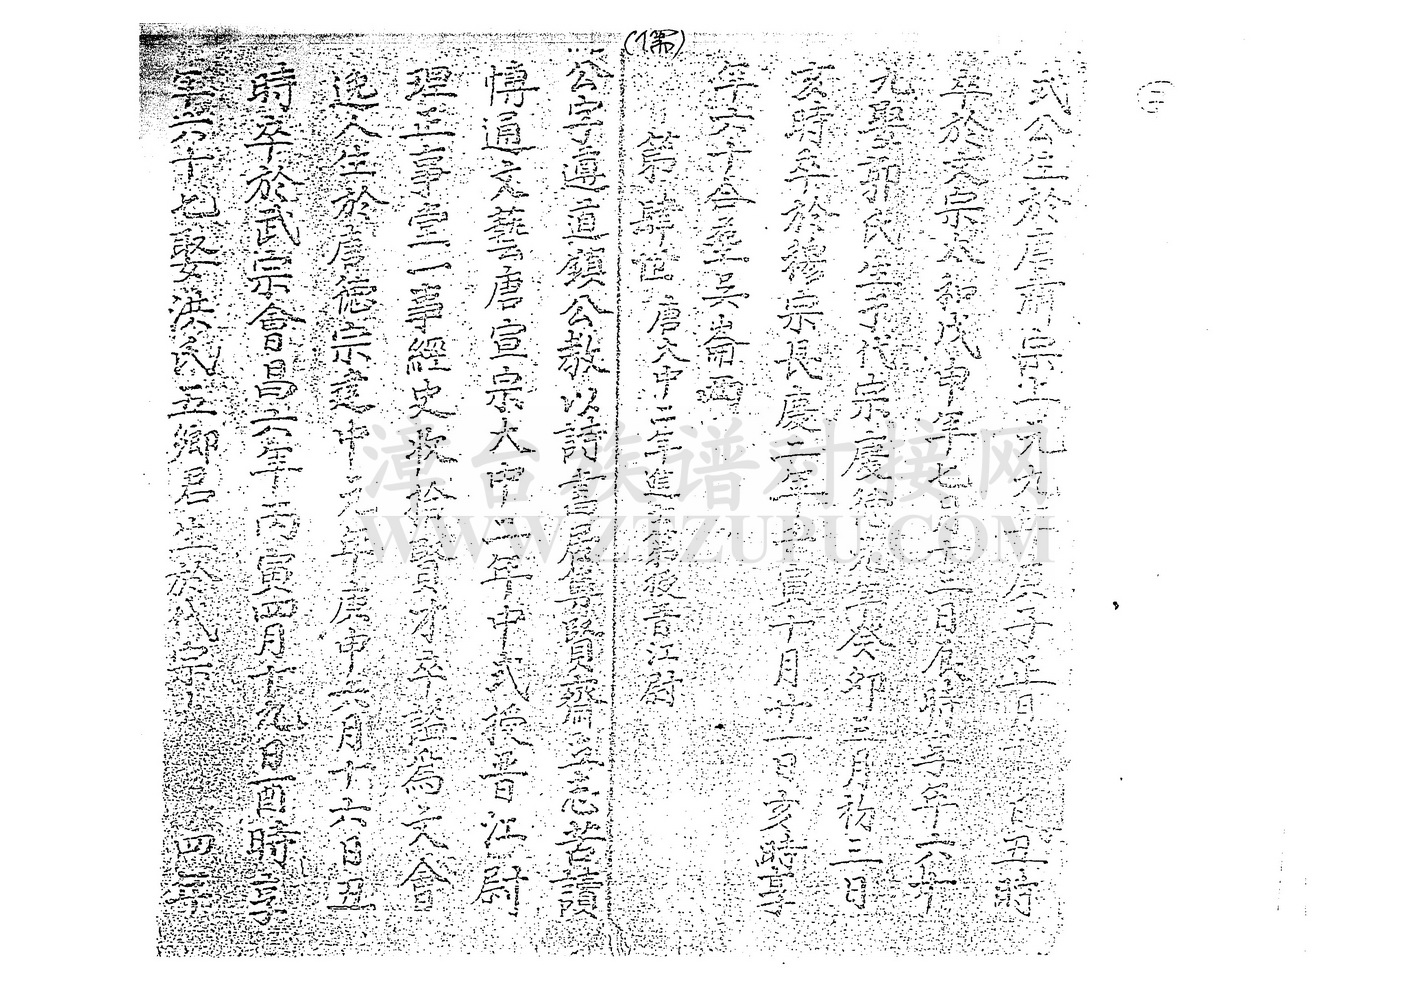 三
武公生於唐肅宗上元元年庚子年 日丑時
卒於文宗太和戊申年七月十三日辰時享年六十
九娶郭氏生于代宗廣德元年癸卯三月初三日
亥時卒於穆宗長慶二年壬寅十月廿一日亥時享
年六十合墓吳崙兩
(1第)
第肆世 唐大中二年進 第授晋江尉
公字遵道鎮公教以詩書居尊賢齋立志苦讀
博通文藝唐宣宗大中二年中式授晋江尉
理正事堂一事經史收拾賢才卒謚為文會
逸人生於唐德宗建中元年庚申六月十六日丑
時卒於武宗會昌六年丙寅四月十九日酉時享
年六十七娶洪氏五鄉君生於代宗 四年
漳台族谱对接网
WWW.ZTZUPU.COM